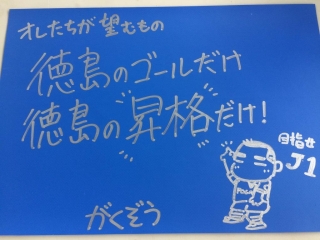 オレたちが望むもの
徳島のゴールだけ
徳島の昇格だけ!
目指せ
J1
がくぞう